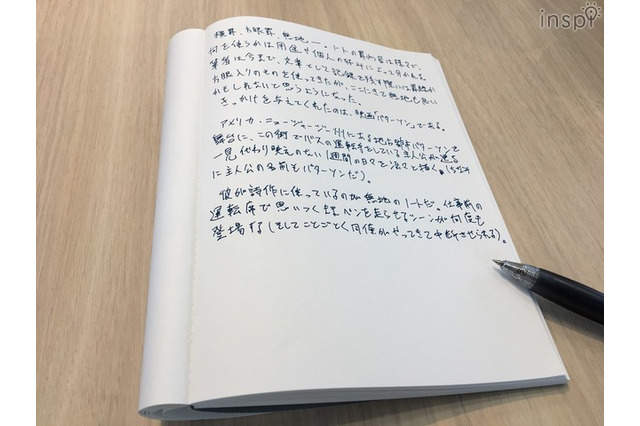 inspi
横罫、方眼罫、無地…。ノートの罫内容は様々で、
何を使うかは用途や個人の好みによって分かれる。
筆者は今まで、文章として記録を残す際には罫線か
方眼入りのものを使ってきたが、ここにきて無地も良い
かもしれないと思うようになった。
きっかけを与えてくれたのは、映画「パターソン」である。
アメリカ・ニュージャージー州にある地方都市パターソンを
舞台に、この街でバスの運転手をしている主人公が過ごす
一見代わり映えのない1週間の日々を淡々と描く(ちなみ
に主人公の名前もパターソンだ)。
彼が詩作に使っているのが無地のノートだ。仕事前の
運転席で思いつくままペンを走らせるシーンが何度も
登場する(そしてことごとく同僚がやってきて中断させられる)。